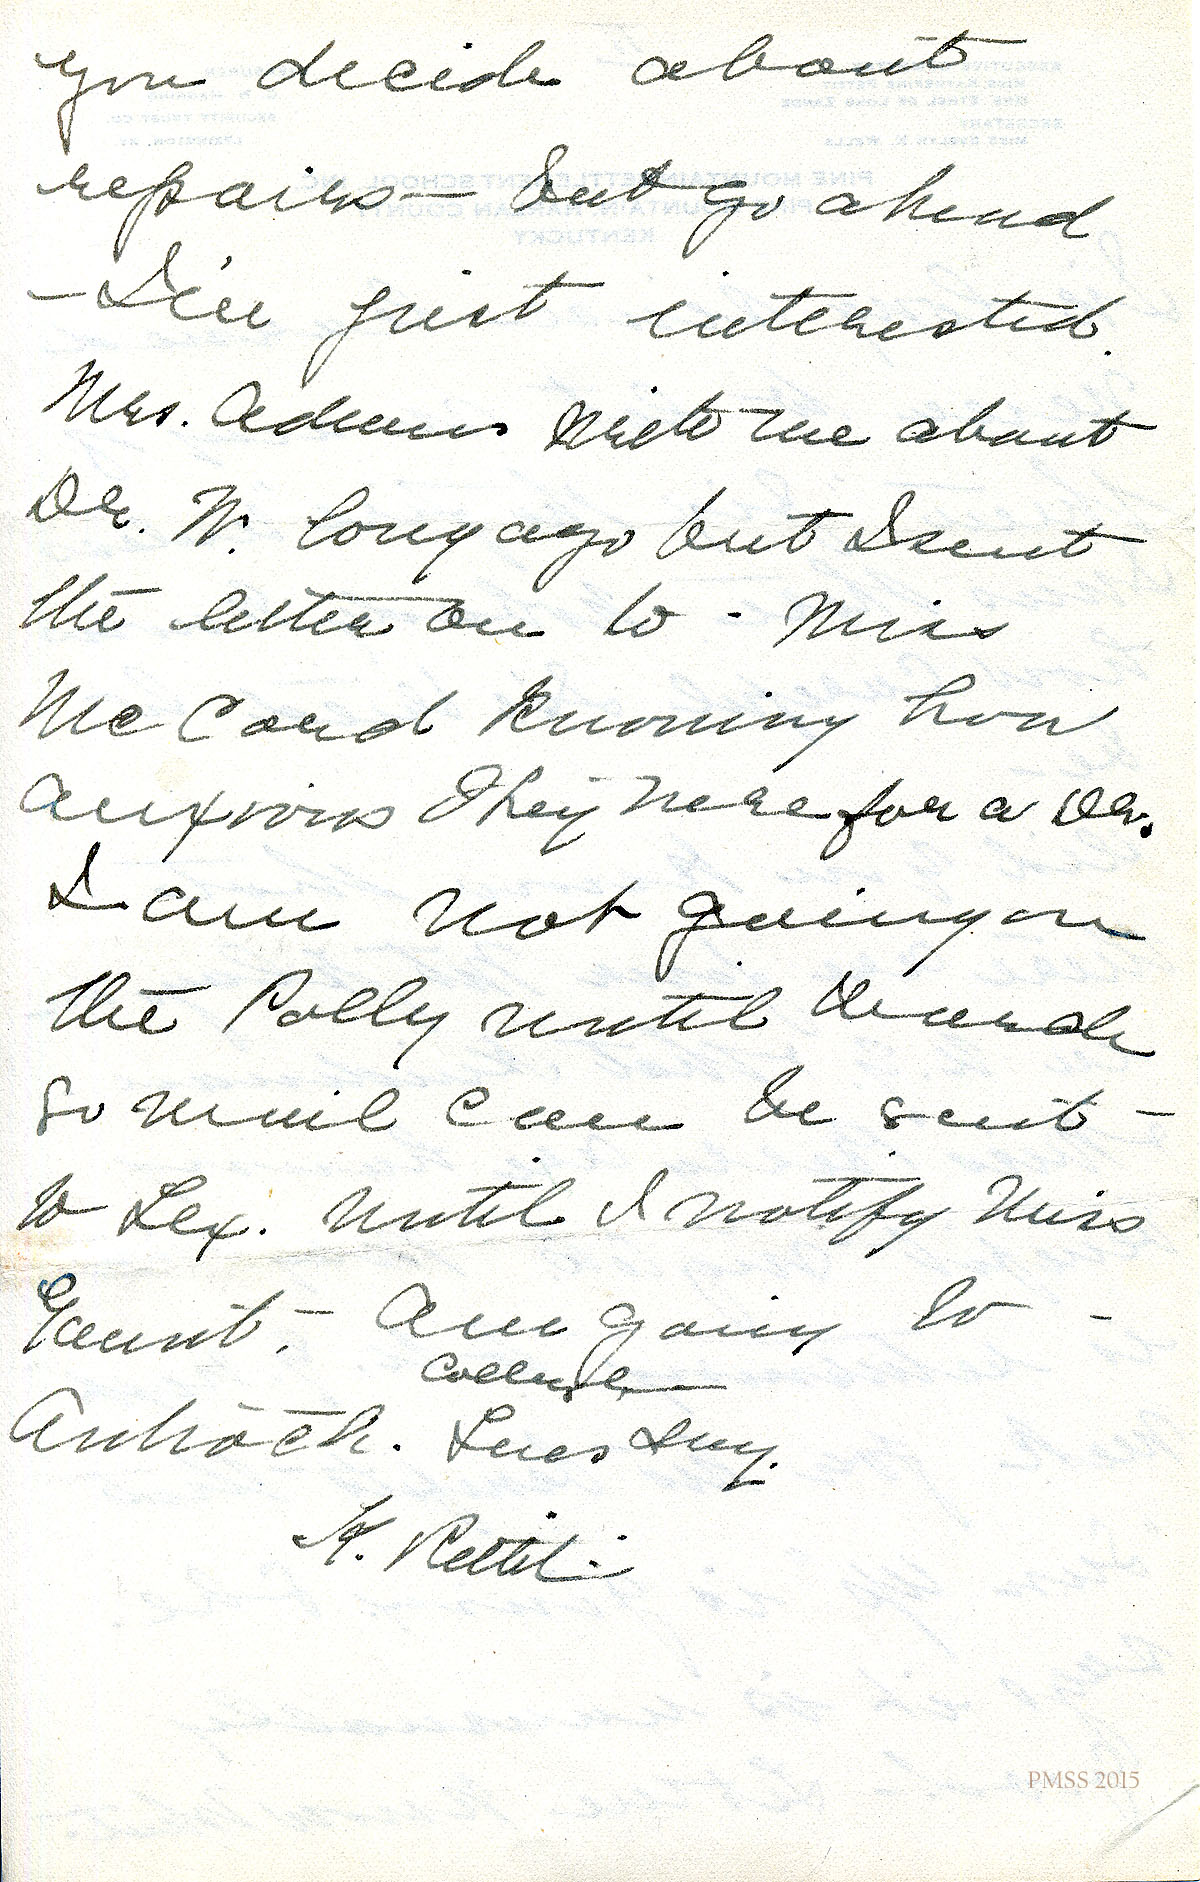 you decide about
repairs — but go ahead
— I'm just interested.
Mrs. Adams wrote me about
Dr. W. long ago but I sent
the letter on to - Miss
McCord knowing how
anxious they were for a Dr.
I am not going on
the Polly until March
so mail can be sent -
to Lex. until I notify Miss
Gaunt. - Am going to -
College
Antioch. Tuesday.
K. Pettit.
PMSS 2015